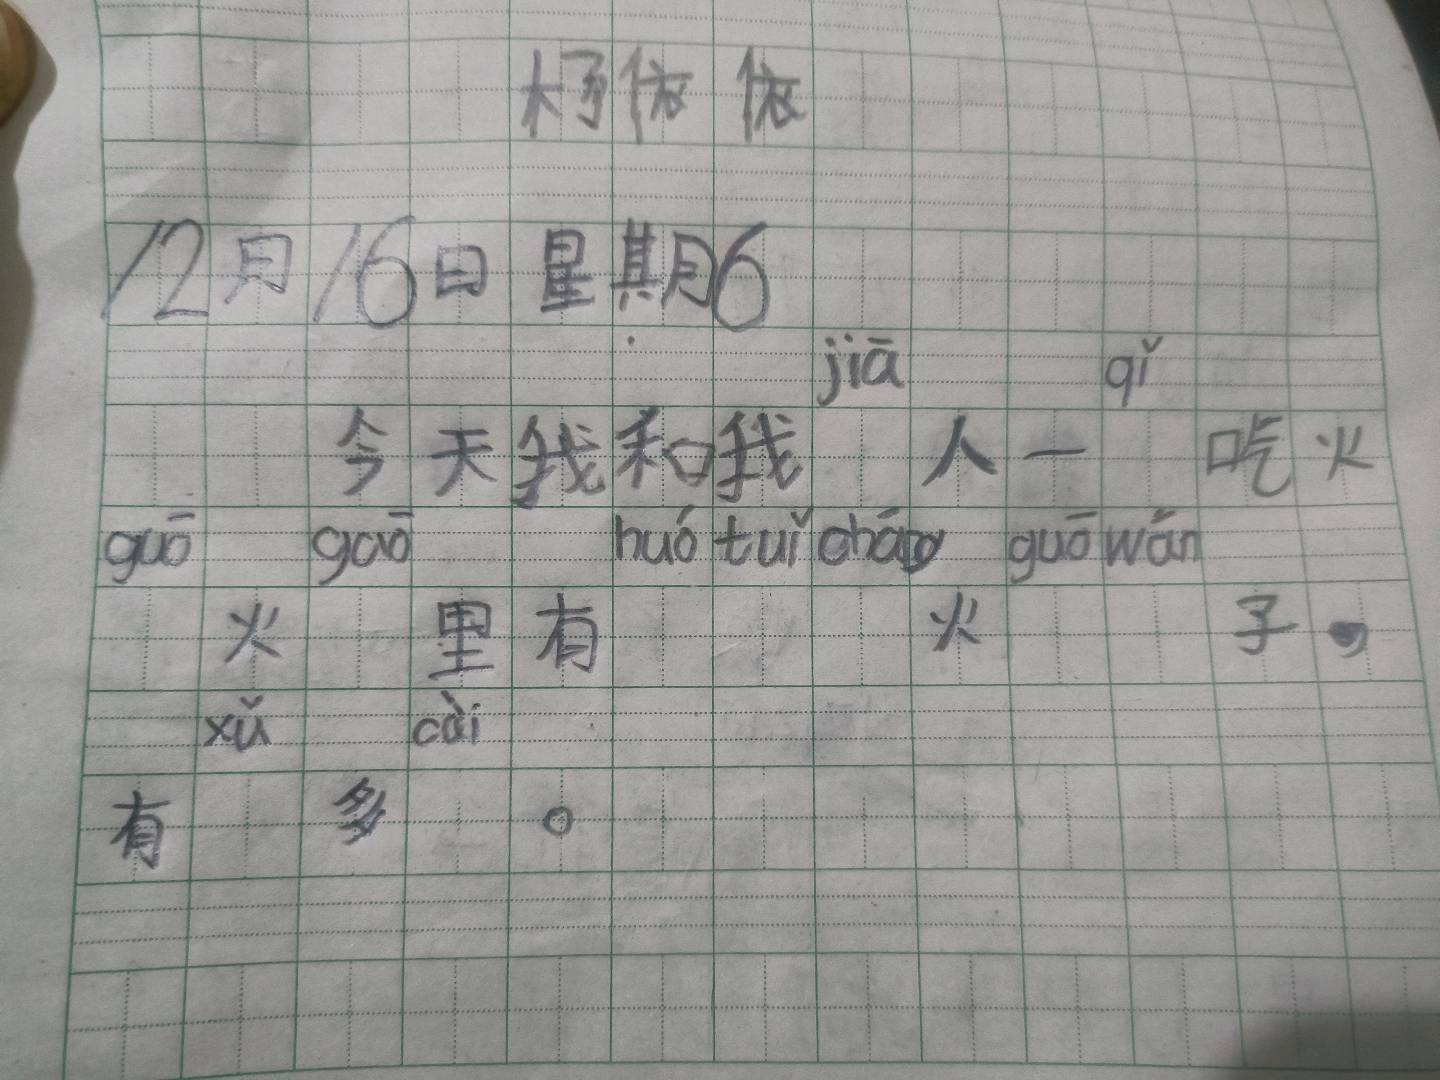 杨依依
12月16日 星期6
jiā qǐ
今天我和我 人一 吃火
guō gaō huó tuǐ cháng guō wán
火 里有 火 子，
xǔ cài
有 多 。